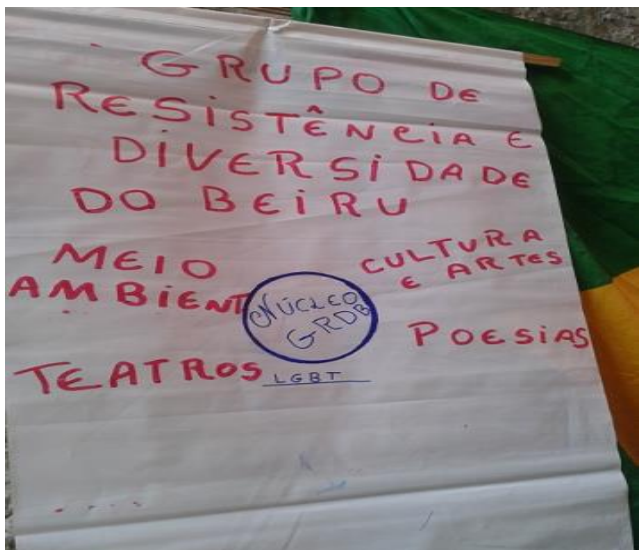 GRUPO DE
RESISTÊNCIA E
DIVERSIDADE
DO BEIRU
MEIO
AMBIENT
CULTURA
E ARTES
NÚCLEO
GRDB
POESIAS
TEATROS
LGBT